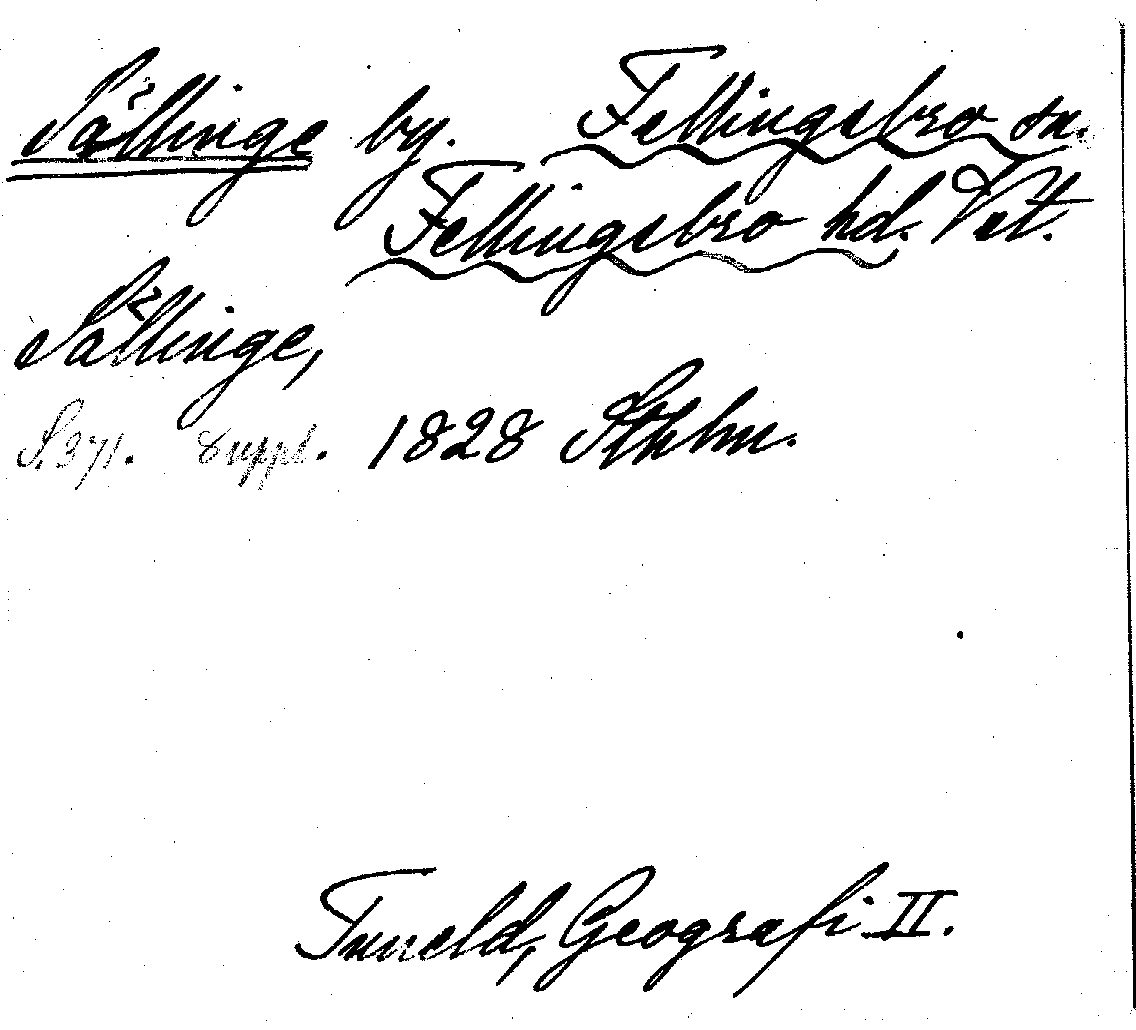 Sållinge by. Fellingsbro sn.
Fellingsbro hd. Vstl.
Sållinge,
S. 371. Suppl. 1828 Sthlm.
Tuneld, Geografi II.